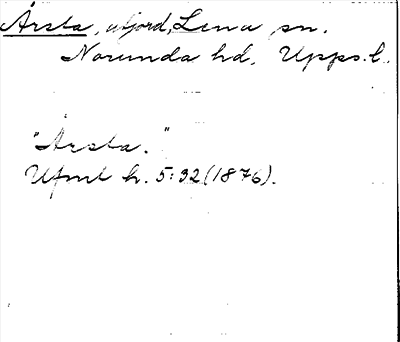 Årsta, utjord, Lena sn.
Norunda hd, Upps. l.
"Årsta."
Ufmt h. 5:32 (1876).